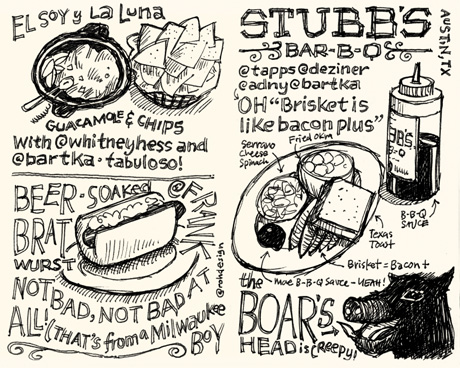 EL SOY y LA LUNA
GUACAMOLE & CHIPS
WITH @WHITNEYHESS AND
@BARTKA · FABULOSO!
BEER-SOAKED
BRAT
WURST
@FRANK
NOT BAD, NOT BAD AT
ALL! (THAT'S from a Milwaukee
BOY
@rohdesign
STUBB'S
BAR-B-Q
AUSTIN, TX
@tapps @deziner
@adny @bartka
OH "Brisket is
like bacon plus"
Serrano
Cheese
Spinach
Fried Okra
BB's
B-B-Q
SAUCE
Texas
Toast
Brisket = Bacon+
More B-B-Q Sauce - YEAH!
the
BOAR'S
HEAD is creepy!